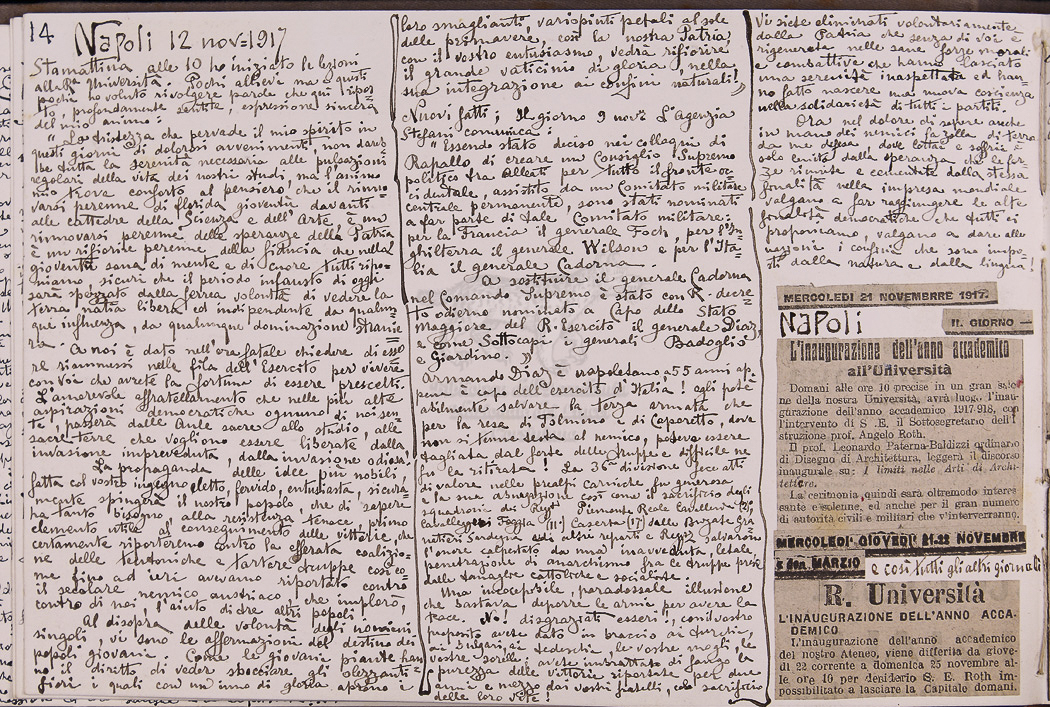 14
Napoli 12 nov=1917
Stamattina alle 10 ho iniziato le lezioni
alla Ra Università. Pochi allievi ma a questi
pochi ho voluto rivolgere parole che qui ripor=
to, profondamente sentite, espressione sincera
del mio animo:
"La tristezza che pervade il mio spirito in
questi giorni di dolorosi avvenimenti, non dareb
be tutta la serenità necessaria alle pulsazioni
regolari della vita dei nostri studi, ma l'animo
mio trova conforto al pensiero, che il rinno
varsi perenne di florida gioventù davanti
alle cattedre della Scienza e dell'Arte, è un
rinnovarsi perenne delle speranze della Patria
è un rifiorire perenne della fiducia che nella
gioventù sana di mente e di cuore tutti ripo=
niamo, sicuri che il periodo infausto di oggi
sarà spezzato dalla ferrea volontà di vedere la
terra natia libera ed indipendente da qualun=
que influenza, da qualunque dominazione stranie
ra.
A noi è dato nell'ora fatale chiedere di esse
re riammessi nelle fila dell'Esercito per vivere
con Voi che avrete la fortuna di essere prescelti.
L'amorevole affratellamento che nelle più alte
aspirazioni democratiche ognuno di noi sen
te, passerà dalle Aule sacre allo studio, alle
sacre terre che vogliono essere liberate dalla
invasione impreveduta, dalla invasione odiosa.
La propaganda delle idee più nobili,
fatta col vostro ingegno eletto, fervido, entusiasta, sicura=
mente spingerà il nostro popolo che di sapere
ha tanto bisogno, alla resistenza tenace, primo
elemento utile al conseguimento delle vittorie, che
certamente riporteremo contro la efferata coalizio=
ne delle teutoniche e tartare truppe così co=
me fino ad ieri avevamo riportato contro
il secolare nemico austriaco, che implorò,
contro di noi, l'aiuto di tre altri popoli!
Al disopra delle volontà degli uomini
singoli, vi sono le affermazioni del destino dei
popoli giovani. Come le giovani piante han
no il diritto di vedere sbocciare gli olezzanti=
fiori i quali con un inno di gloria aprono i
loro smaglianti, variopinti petali al sole
delle primavere, così la nostra Patria
con il vostro entusiasmo, vedrà rifiorire
il grande vaticinio di gloria, nella
sua integrazione ai confini naturali!"
Nuovi fatti; Il giorno 9 nov.e L'Agenzia
Stefani comunica:
"Essendo stato deciso nei colloqui di
Rapallo di creare un Consiglio Supremo
politico fra Alleati per tutto il fronte oc=
cidentale, assistito da un Comitato militare
centrale permanente, sono stati nominati
a far parte di tale Comitato militare:
per la Francia il generale Foch, per l'In=
ghilterra il generale Wilson e per l'Ita=
lia il generale Cadorna.
A sostituire il generale Cadorna
nel Comando Supremo è stato con R. decre=
to odierno nominato a Capo dello Stato
Maggiore del R. Esercito il generale Diaz,
e come Sottocapi i generali Badoglio
e Giardino."
Armando Diaz è napoletano, a 55 anni ap=
pena è capo dell'esercito d'Italia! Egli potè
abilmente salvare la terza armata che
per la resa di Tolmino e di Caporetto, dove
non si tenne testa al nemico, poteva essere
tagliata dal forte delle truppe e difficile ne
fu la ritirata! La 36a divisione fece atti
di valore nelle prealpi Carniche fu generosa
e la sua abnegazione così come il sacrificio degli
squadroni dei Reggti Piemonte Reale Cavalleria (2),
Cavalleggeri Foggia (11) Caserta (17) delle Brigate Gra
natieri Sardegna ed altri reparti e Reggti salvarono
l'onore calpestato da una inavveduta, letale,
penetrazione di anarchismo fra le truppe prese
dalle tanaglie cattoliche e socialiste.
Una incepibile, paradossale illusione
che bastava deporre le armi per avere la
pace. No! disgraziati esseri!, con il vostro
proposito avete dato in braccio ai turchi,
ai bulgari, ai tedeschi, le vostre mogli, le
vostre sorelle, avete imbrattato di fango la
purezza delle vittorie riportate per due
anni e mezzo dai vostri fratelli, col sacrificio
delle loro vite!
Vi siete eliminati volontariamente
dalla Patria che senza di voi è
rigenerata nelle sane forze morali
e combattive che hanno lasciato
una serenità inaspettata ed han=
no fatto nascere una nuova coscienza
nella solidarietà di tutti i partiti.
Ora nel dolore di sapere anche
in mano dei nemici la zolla di terra
da me difesa, dove lottai e soffrii è
solo lenito dalla speranza che le for=
ze riunite e cementate dalla stessa
finalità nella impresa mondiale
valgano a far raggiungere le alte
finalità democratiche che tutti ci
proponiamo, valgano a dare alle
nazioni i confini che sono impo=
sti dalla natura e dalla lingua!
MERCOLEDI 21 NOVEMBRE 1917.
NAPOLI
IL GIORNO —
L'inaugurazione dell'anno accademico
all'Università
Domani alle ore 10 precise in un gran salo
ne della nostra Università, avrà luogo l'inau-
gurazione dell'anno accademico 1917-918, con
l'intervento di S .E. il Sottosegretario dell'I-
struzione prof. Angelo Roth.
Il prof. Leonardo Paterna-Baldizzi ordinario
di Disegno di Architettura, leggerà il discorso
inaugurale su: I limiti nelle Arti di Archi-
tettura.
La cerimonia, quindi sarà oltremodo interes
sante e solenne, ed anche per il gran numero
di autorità civili e militari che v'interverranno.
MERCOLEDÌ GIOVEDI' 21.22 NOVEMBRE
e don MARZIO
e così tutti gli altri giornali
R. Università
L'INAUGURAZIONE DELL'ANNO ACCA-
DEMICO
L'inaugurazione dell'anno accademico
del nostro Ateneo, viene differita da giove-
dì 22 corrente a domenica 25 novembre al-
le ore 10 per desiderio S. E. Roth im-
possibilitato a lasciare la Capitale domani.